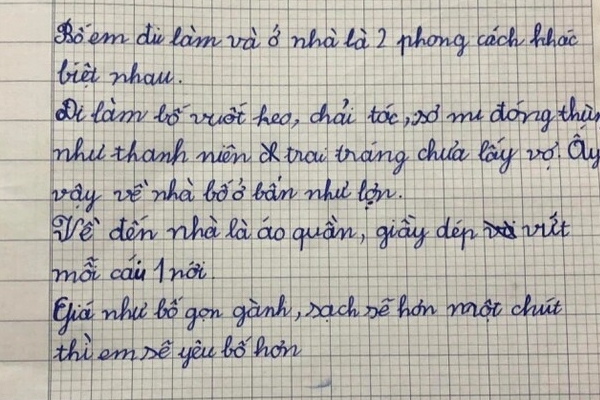 Bố em đi làm và ở nhà là 2 phong cách khác
biệt nhau.
Đi làm bố vuốt keo, chải tóc, sơ mi đóng thùng
như thanh niên trai tráng chưa lấy vợ. Ấy
vậy về nhà bố ở bẩn như lợn.
Về đến nhà là áo quần, giầy dép vứt
mỗi cái 1 nơi.
Giá như bố gọn gành, sạch sẽ hơn một chút
thì em sẽ yêu bố hơn